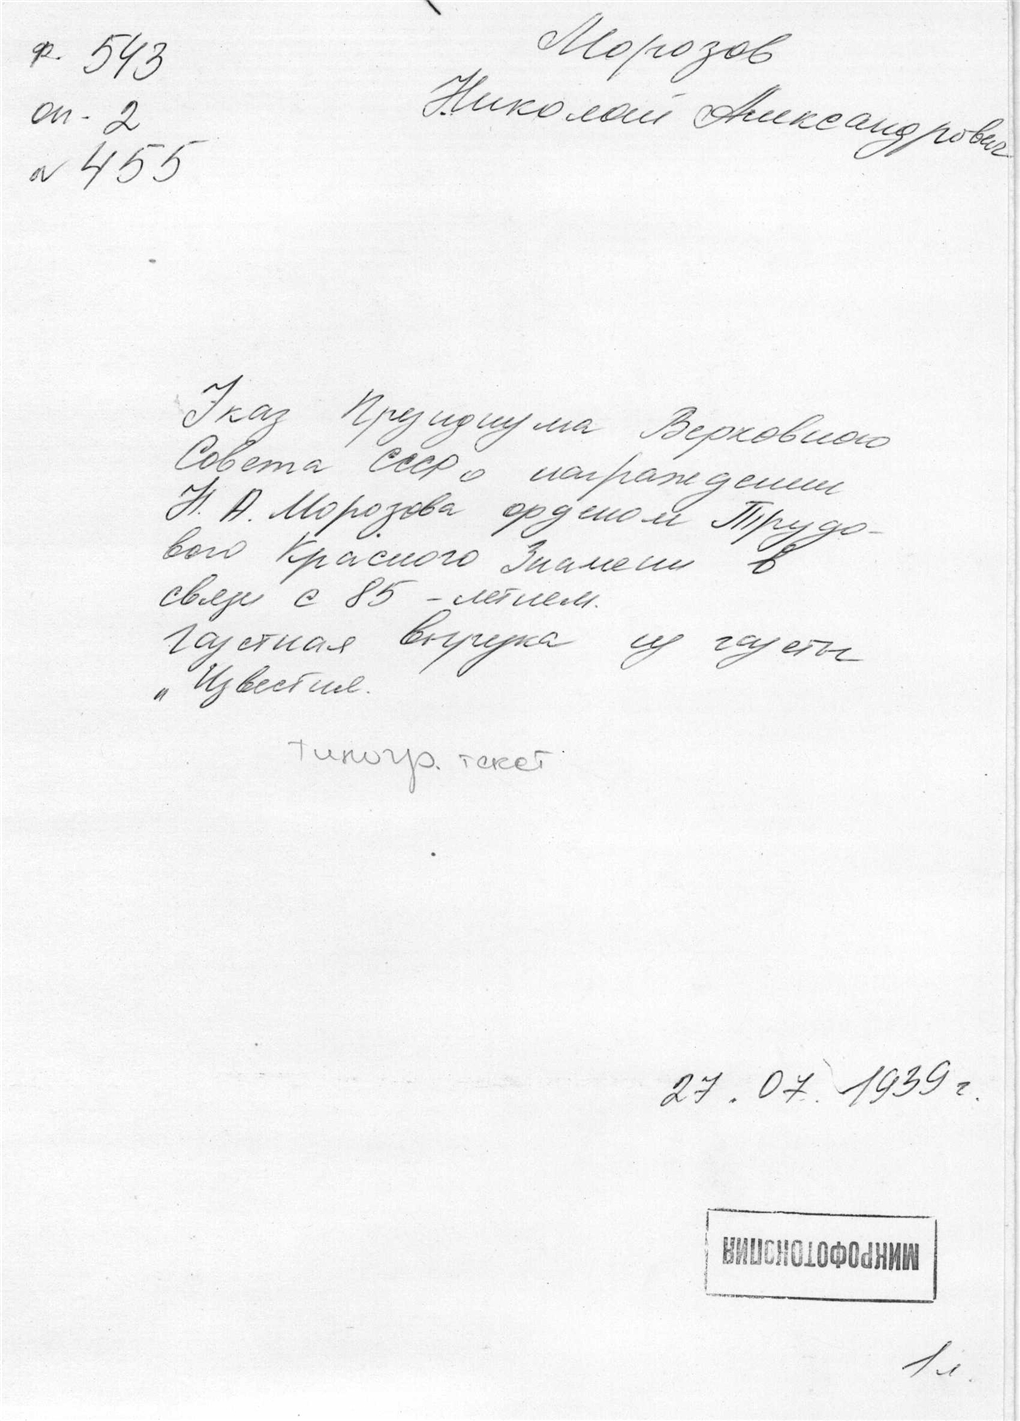 ф. 543
оп. 2
N 455
Морозов
Николай Александрович
Указ Президиума Верховного
Совета СССР о награждении
Н. А. Морозова орденом Трудо-
вого Красного Знамени в
связи с 85-летием.
Газетная вырезка из газеты
„Известия.
типогр. текст
27.07.1939 г.
МИКРОФОТОКОПИЯ
1 л.